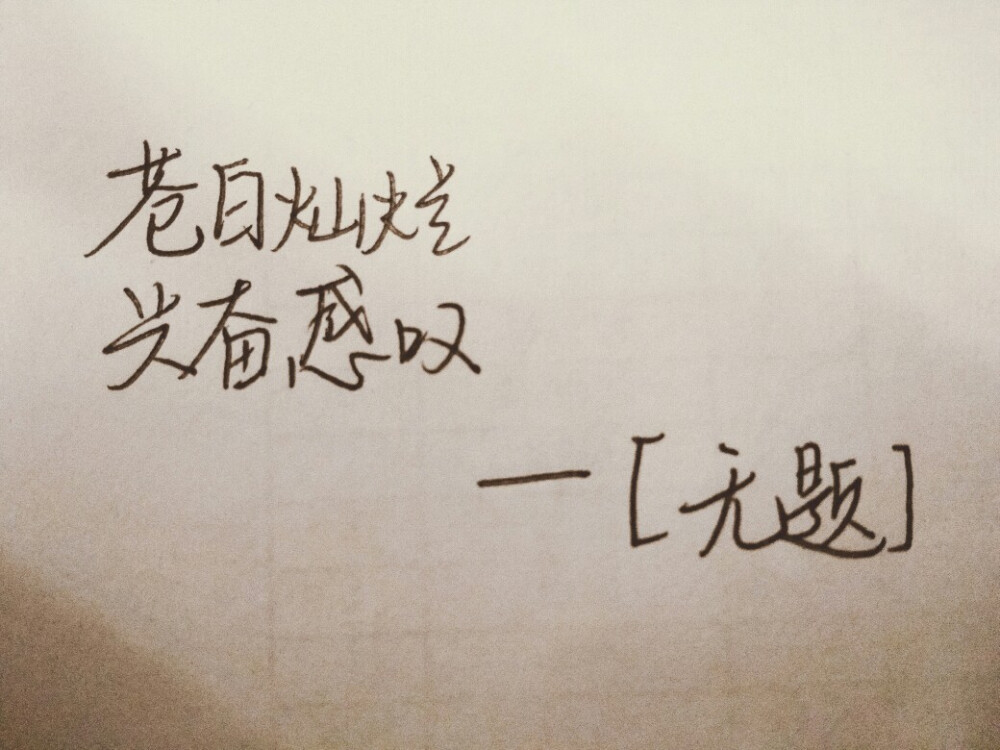 苍白灿烂
兴奋感叹
—[无题]